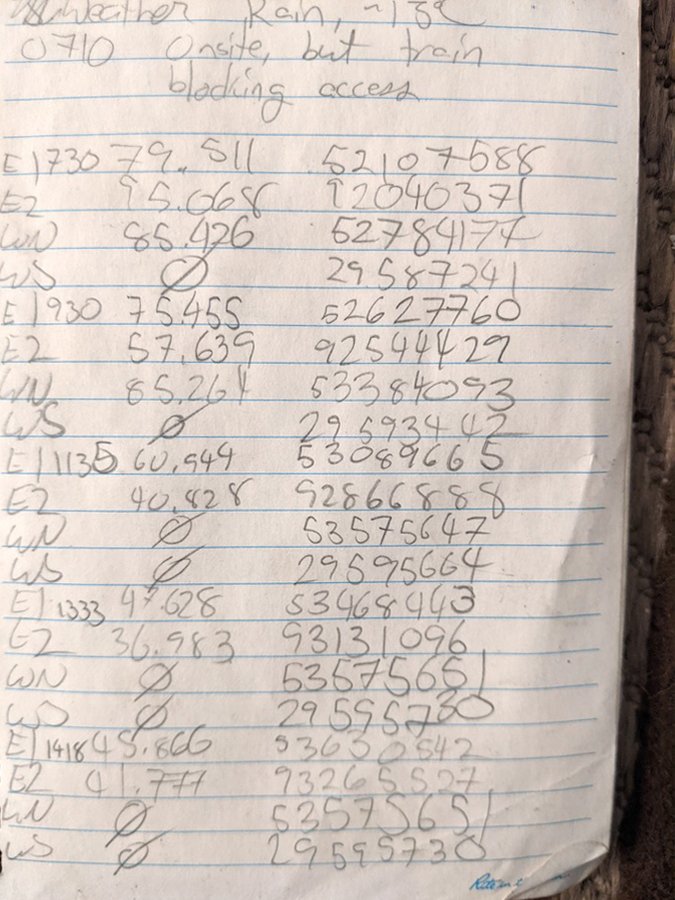 Weather Rain, ~13°C
0710 Onsite, but train
blocking access
E1 730 79.511 52107588
E2 95.068 92040371
WN 85.426 52784177
WS Ø 29587241
E1 930 75.455 52627760
E2 57.639 92544429
WN 85.264 53384093
WS Ø 29593442
E1 1135 60.949 53089665
E2 40.828 92866888
WN Ø 53575647
WS Ø 29595664
E1 1333 47.628 53468443
E2 36.983 93131096
WN Ø 53575651
WS Ø 29595730
E1 1418 45.866 53630542
E2 41.777 93265527
WN Ø 53575651
WS Ø 29595730